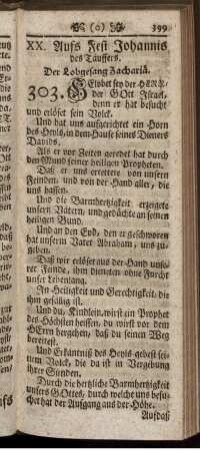 (o) 399
XX. Auffs Fest Johannis
des Täuffers.
Der Lobgesang Zachariä.
303. GElobet sey der HERR/
der GOtt Israel,
denn er hat besucht
und erlöset sein Volck.
Und hat uns auffgerichtet ein Horn
des Heyls, in dem Hause seines Dieners
Davids.
Als er vor Zeiten geredet hat durch
den Mund seiner heiligen Propheten.
Daß er uns errettete von unsern
Feinden, und von der Hand aller, die
uns hassen.
Und die Barmhertzigkeit erzeigete
unsern Vätern, und gedächte an seinen
heiligen Bund.
Und an den Eyd, den er geschworen
hat unserm Vater Abraham, uns zu
geben.
Daß wir erlöset aus der Hand unse-
rer Feinde, ihm dieneten ohne Furcht
unser Lebenlang.
In Heiligkeit und Gerechtigkeit, die
ihm gefällig ist.
Und du, Kindlein, wirst ein Prophet
des Höchsten heissen, du wirst vor dem
HErrn hergehen, daß du seinen Weg
bereitest.
Und Erkäntniß des Heyls gebest sei-
nem Volck, die da ist in Vergebung
ihrer Sünden.
Durch die hertzliche Barmhertzigkeit
unsers GOttes, durch welche uns besu-
chet hat der Auffgang aus der Höhe.
Auffdaß